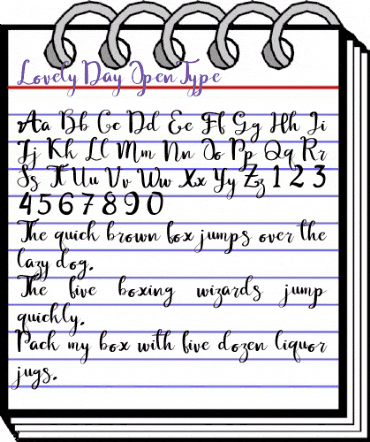 Lovely Day OpenType
Aa Bb Cc Dd Ee Ff Gg Hh Ii
Jj Kk Ll Mm Nn Oo Pp Qq Rr
Ss Tt Uu Vv Ww Xx Yy Zz 1 2 3
4 5 6 7 8 9 0
The quick brown fox jumps over the
lazy dog.
The five boxing wizards jump
quickly.
Pack my box with five dozen liquor
jugs.